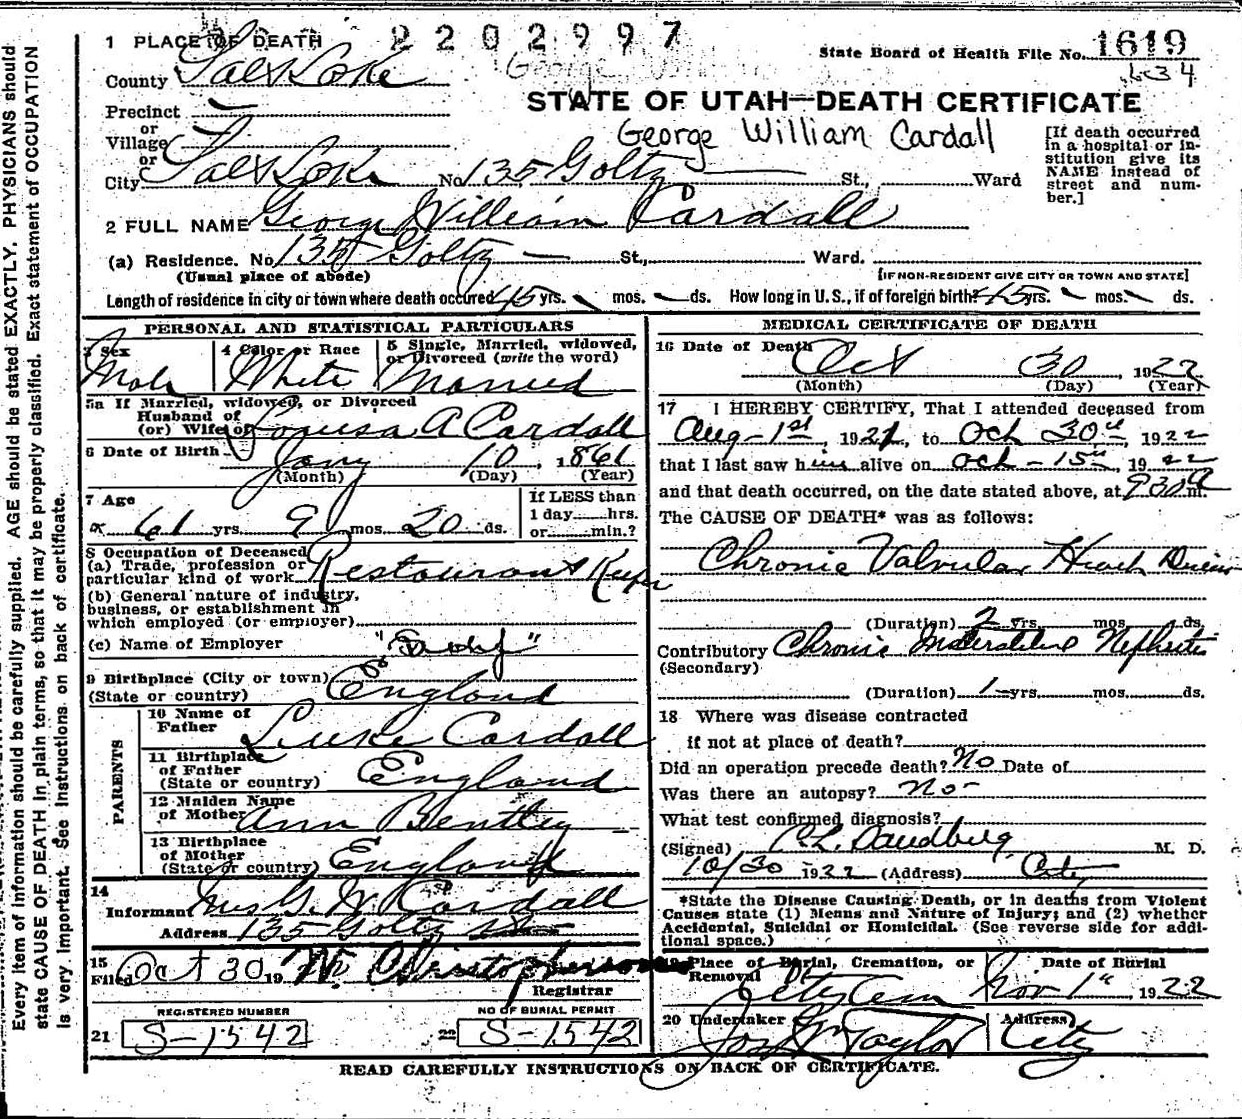 Every item of information should be carefully supplied. AGE should be stated EXACTLY. PHYSICIANS should
state CAUSE OF DEATH in plain terms, so that it may be properly classified. Exact statement of OCCUPATION
is very important. See instructions on back of certificate.
1 PLACE OF DEATH
2202997
State Board of Health File No. 1619
County Salt Lake
STATE OF UTAH—DEATH CERTIFICATE
Precinct
or
Village
or
George William Cardall
[If death occurred
in a hospital or in-
stitution give its
NAME instead of
street and num-
ber.]
City Salt Lake No. 135 Goltz St., Ward
2 FULL NAME George William Cardall
(a) Residence. No. 135 Goltz St., Ward.
(Usual place of abode) [IF NON-RESIDENT GIVE CITY OR TOWN AND STATE]
Length of residence in city or town where death occured 45 yrs. mos. ds. How long in U. S., if of foreign birth? 45 yrs. mos. ds.
PERSONAL AND STATISTICAL PARTICULARS
3 Sex
Male
4 Color or Race
White
5 Single, Married, widowed,
or Divorced (write the word)
Married
5a If Married, widowed, or Divorced
Husband of
(or) Wife of Louisa A Cardall
6 Date of Birth Jany 10, 1861
(Month) (Day) (Year)
7 Age
61 yrs. 9 mos. 20 ds.
If LESS than
1 day hrs.
or min.?
8 Occupation of Deceased
(a) Trade, profession or
particular kind of work Restaurant Keeper
(b) General nature of industry,
business, or establishment in
which employed (or employer)
(c) Name of Employer
9 Birthplace (City or town)
(State or country) England
PARENTS
10 Name of
Father Luke Cardall
11 Birthplace
of Father
(State or country) England
12 Maiden Name
of Mother Ann Bentley
13 Birthplace
of Mother
(State or country) England
14
Informant Mrs G. W Cardall
Address 135 Goltz
15
Filed Oct 30 19 W. Christopherson
Registrar
REGISTERED NUMBER
21 S-1542
NO OF BURIAL PERMIT
22 S-1542
MEDICAL CERTIFICATE OF DEATH
16 Date of Death
Oct 30, 1922
(Month) (Day) (Year)
17 I HEREBY CERTIFY, That I attended deceased from
Aug-1st, 1921, to Oct 30th, 1922
that I last saw him alive on Oct-15th, 1922
and that death occurred, on the date stated above, at 930a m.
The CAUSE OF DEATH* was as follows:
Chronic Valvular Heart Disease
(Duration) 2 yrs. mos. ds.
Contributory Chronic Nephritis
(Secondary)
(Duration) 1 yrs. mos. ds.
18 Where was disease contracted
if not at place of death?
Did an operation precede death? No Date of
Was there an autopsy? No-
What test confirmed diagnosis?
(Signed) M. D.
10/30 1922 (Address) City
*State the Disease Causing Death, or in deaths from Violent
Causes state (1) Means and Nature of Injury; and (2) whether
Accidental, Suicidal or Homicidal. (See reverse side for addi-
tional space.)
19 Place of Burial, Cremation, or
Removal
City Cem
Date of Burial
Nov 1st, 1922
20 Undertaker
Jos Wm Taylor
Address
City
READ CAREFULLY INSTRUCTIONS ON BACK OF CERTIFICATE.